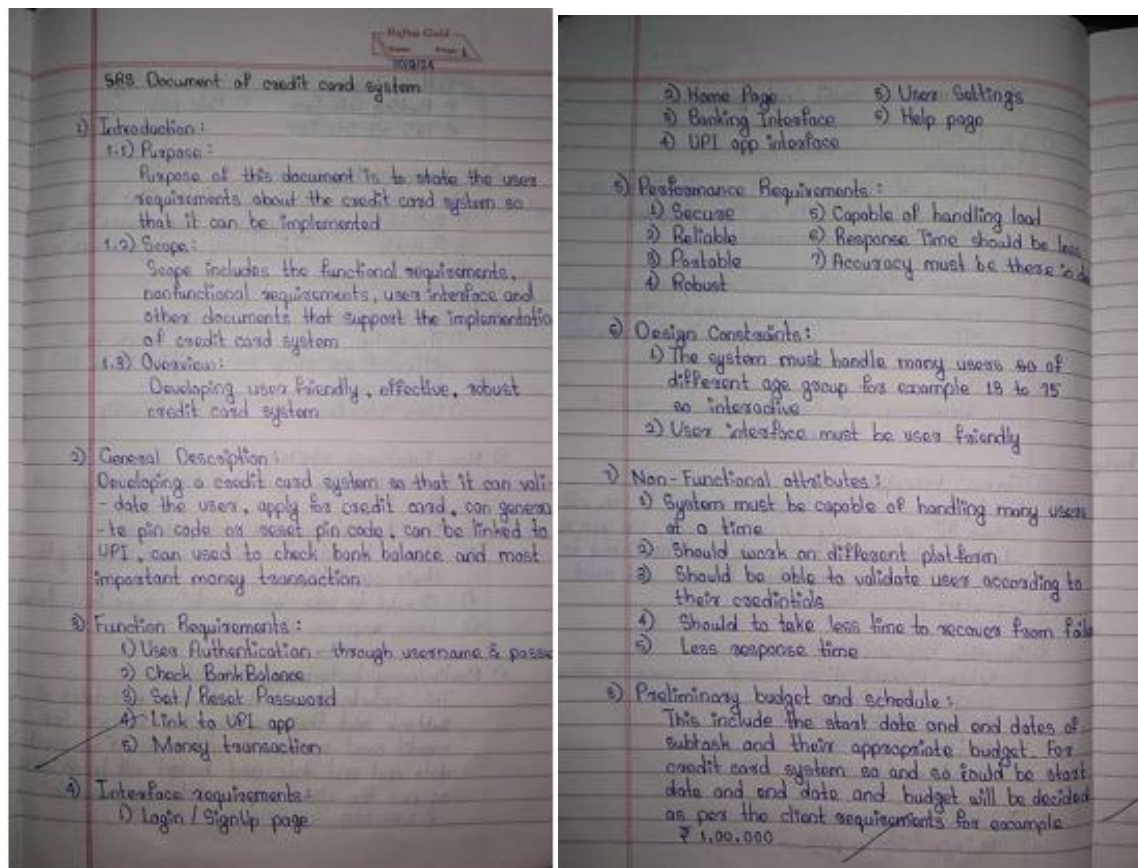 SRS Document of credit card system
1) Introduction :
1.1) Purpose :
Purpose of this document is to state the user
requirements about the credit card system so
that it can be implemented
1.2) Scope :
Scope includes the functional requirements,
nonfunctional requirements, user interface and
other documents that support the implementatio
of credit card system
1.3) Overview :
Developing user friendly, effective, robust
credit card system
2) General Description :
Developing a credit card system so that it can vali-
-date the user, apply for credit card, can genera
-te pin code or reset pin code, can be linked to
UPI, can used to check bank balance and most
important money transaction
3) Function Requirements :
1) User Authentication - through username &
2) Check Bank Balance
3) Set / Reset Password
4) Link to UPI app
5) Money transaction
4) Interface requirements :
1) Login / SignUp page
2) Home Page 5) User Settings
3) Banking Interface 6) Help page
4) UPI app interface
5) Performance Requirements :
1) Secure 5) Capable of handling load
2) Reliable 6) Response Time should be less
3) Portable 7) Accuracy must be there in
4) Robust
6) Design Constraints :
1) The system must handle many users so of
different age group for example 18 to 75
so interactive
2) User interface must be user friendly
7) Non-Functional attributes :
1) System must be capable of handling many users
at a time
2) Should work on different platform
3) Should be able to validate user according to
their credintials
4) Should to take less time to recover from
5) Less response time
8) Preliminary budget and schedule :
This include the start date and end dates of
subtask and their appropriate budget. For
credit card system so and so could be start
date and end date and budget will be decided
as per the client requirements for example
₹ 1,00,000